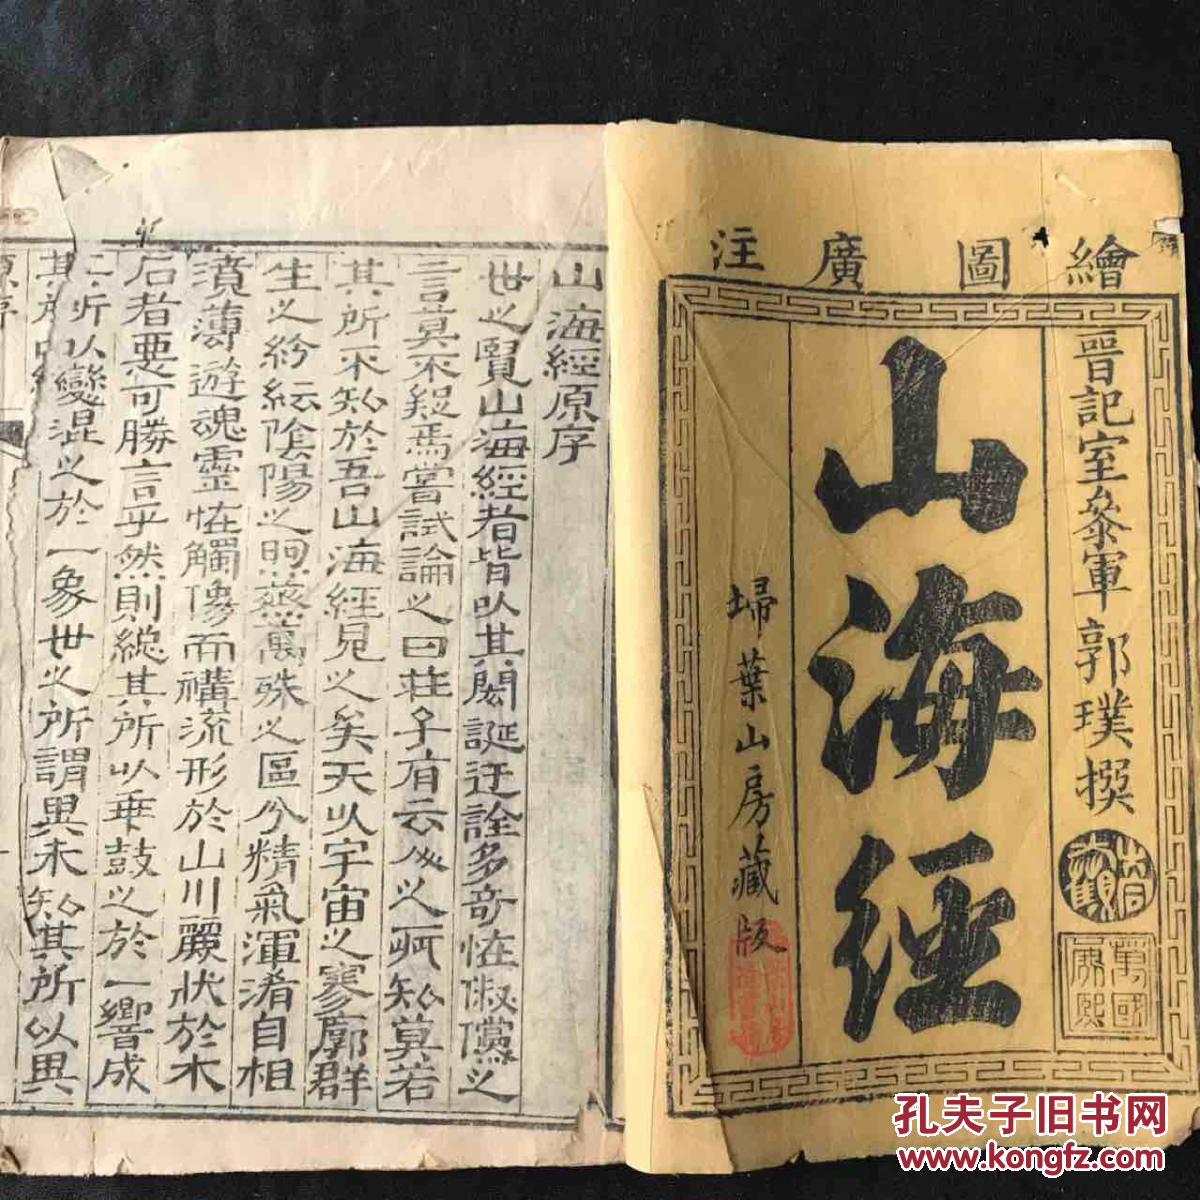 繪圖廣注
晉記室參軍郭璞撰
山海經
埽葉山房藏版
萬國
咸熙
山海經原序
世之覽山海經者皆以其閎誕迂誇多奇怪俶儻之
言莫不疑焉嘗試論之曰莊子有云人之所知莫若
其所不知於吾山海經見之矣夫以宇宙之寥廓群
生之紛紜陰陽之煦蒸萬殊之區分精氣渾淆自相
濆薄遊魂靈怪觸像而構流形於山川麗狀於木
石者惡可勝言乎然則總其所以乖鼓之於一響成
其所以變混之於一象世之所謂異未知其所以異
孔夫子旧书网
www.kongfz.com